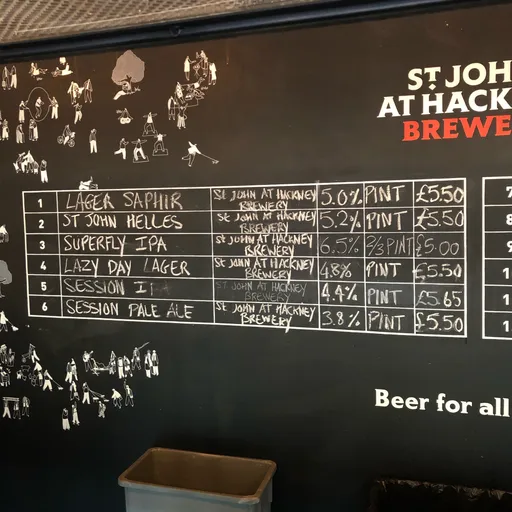 ST JOH
AT HACK
BREWE
1 LAGER SAPHIR ST JOHN AT HACKNEY BREWERY 5.0% PINT £5.50
2 ST JOHN HELLES ST JOHN AT HACKNEY BREWERY 5.2% PINT £5.50
3 SUPERFLY IPA ST JOHN AT HACKNEY BREWERY 6.5% 2/3 PINT £5.00
4 LAZY DAY LAGER ST JOHN AT HACKNEY BREWERY 4.8% PINT £5.50
5 SESSION IPA ST JOHN AT HACKNEY BREWERY 4.4% PINT £5.65
6 SESSION PALE ALE ST JOHN AT HACKNEY BREWERY 3.8% PINT £5.50
7
8
9
1
1
1
Beer for all